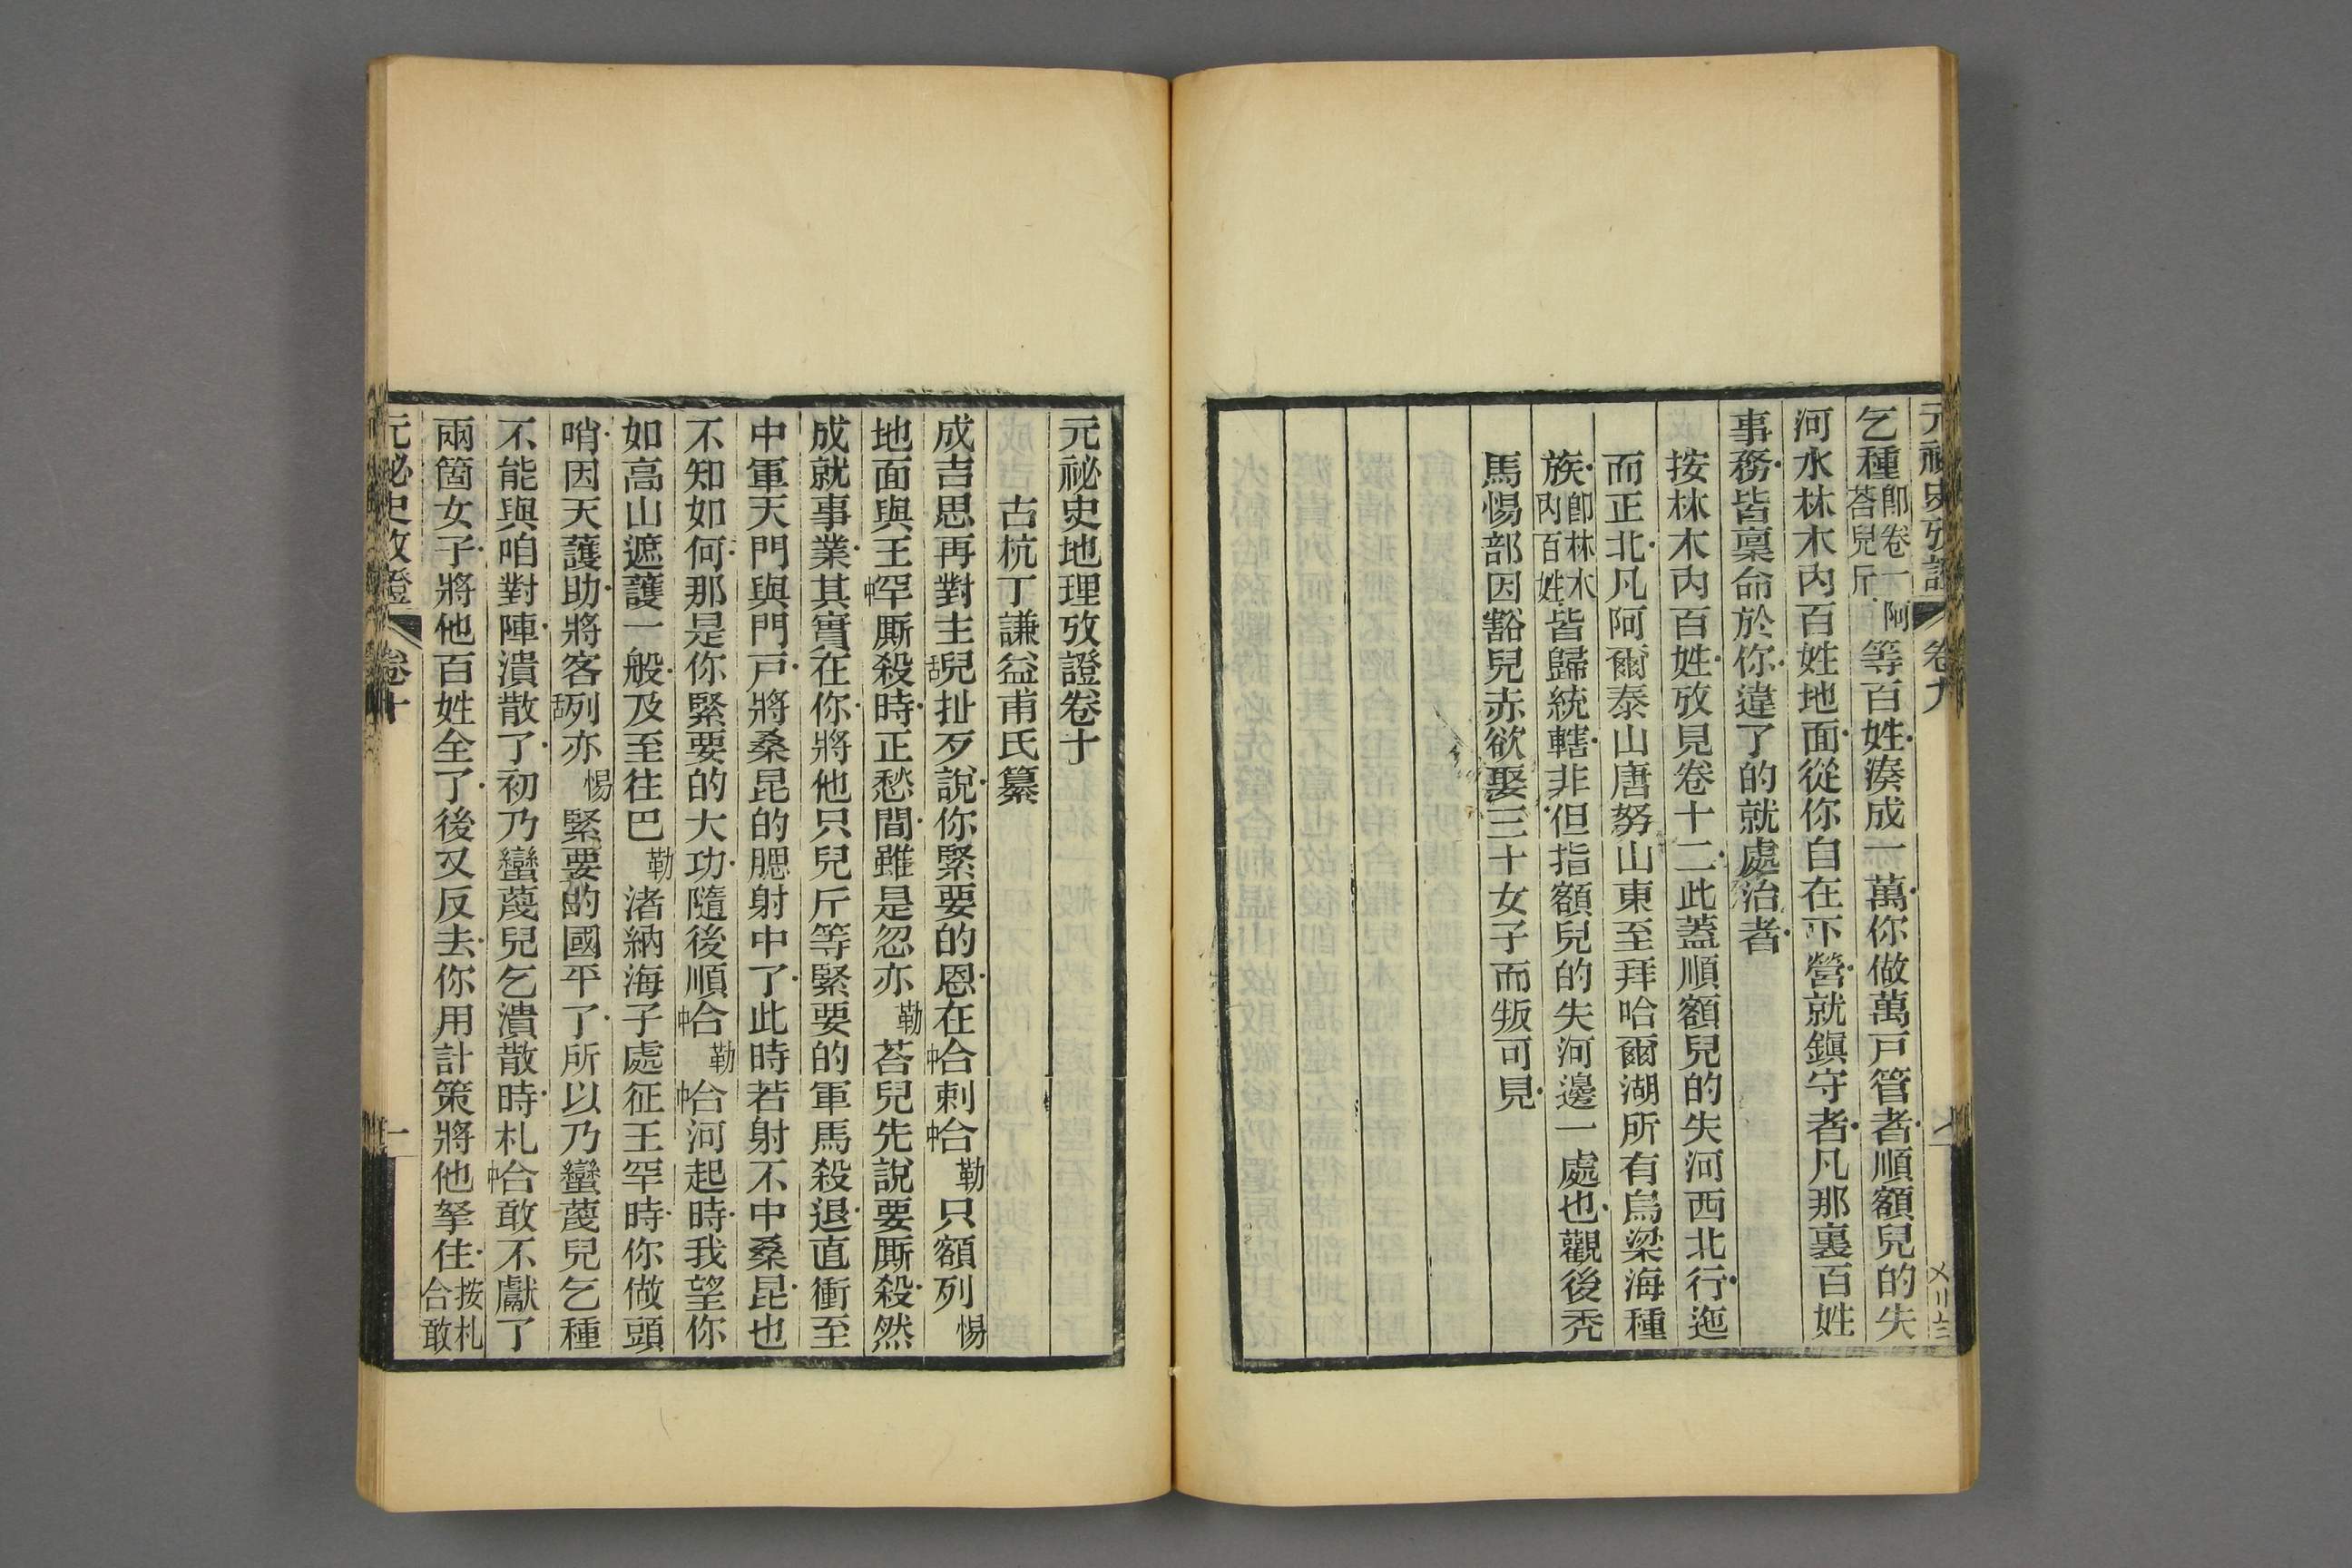 元祕史攷證 卷九
乞種即卷一阿荅兒斤等百姓湊成一萬你做萬戸管者順額兒的失
河水林木內百姓地面從你自在下營就鎭守者凡那裏百姓
事務皆稟命於你違了的就處治者
按林木內百姓攷見卷十二此蓋順額兒的失河西北行迤
而正北凡阿爾泰山唐努山東至拜哈爾湖所有烏梁海種
族即林木內百姓皆歸統轄非但指額兒的失河邊一處也觀後禿
馬惕部因豁兒赤欲娶三十女子而叛可見
元祕史地理攷證卷十
古杭丁謙益甫氏纂
成吉思再對主舌兒扯歹說你緊要的恩在中合剌中合勒只額列惕
地面與王中罕厮殺時正愁間雖是忽亦勒荅兒先說要厮殺然
成就事業其實在你將他只兒斤等緊要的軍馬殺退直衝至
中軍天門與門戸將桑昆的腮射中了此時若射不中桑昆也
不知如何那是你緊要的大功隨後順中合勒中合河起時我望你
如高山遮護一般及至往巴勒渚納海子處征王罕時你做頭
哨因天護助將客舌列亦惕緊要的國平了所以乃蠻蔑兒乞種
不能與咱對陣潰散了初乃蠻蔑兒乞潰散時札中合敢不獻了
兩箇女子將他百姓全了後又反去你用計策將他拏住按札合敢
元祕史攷證 卷十 一